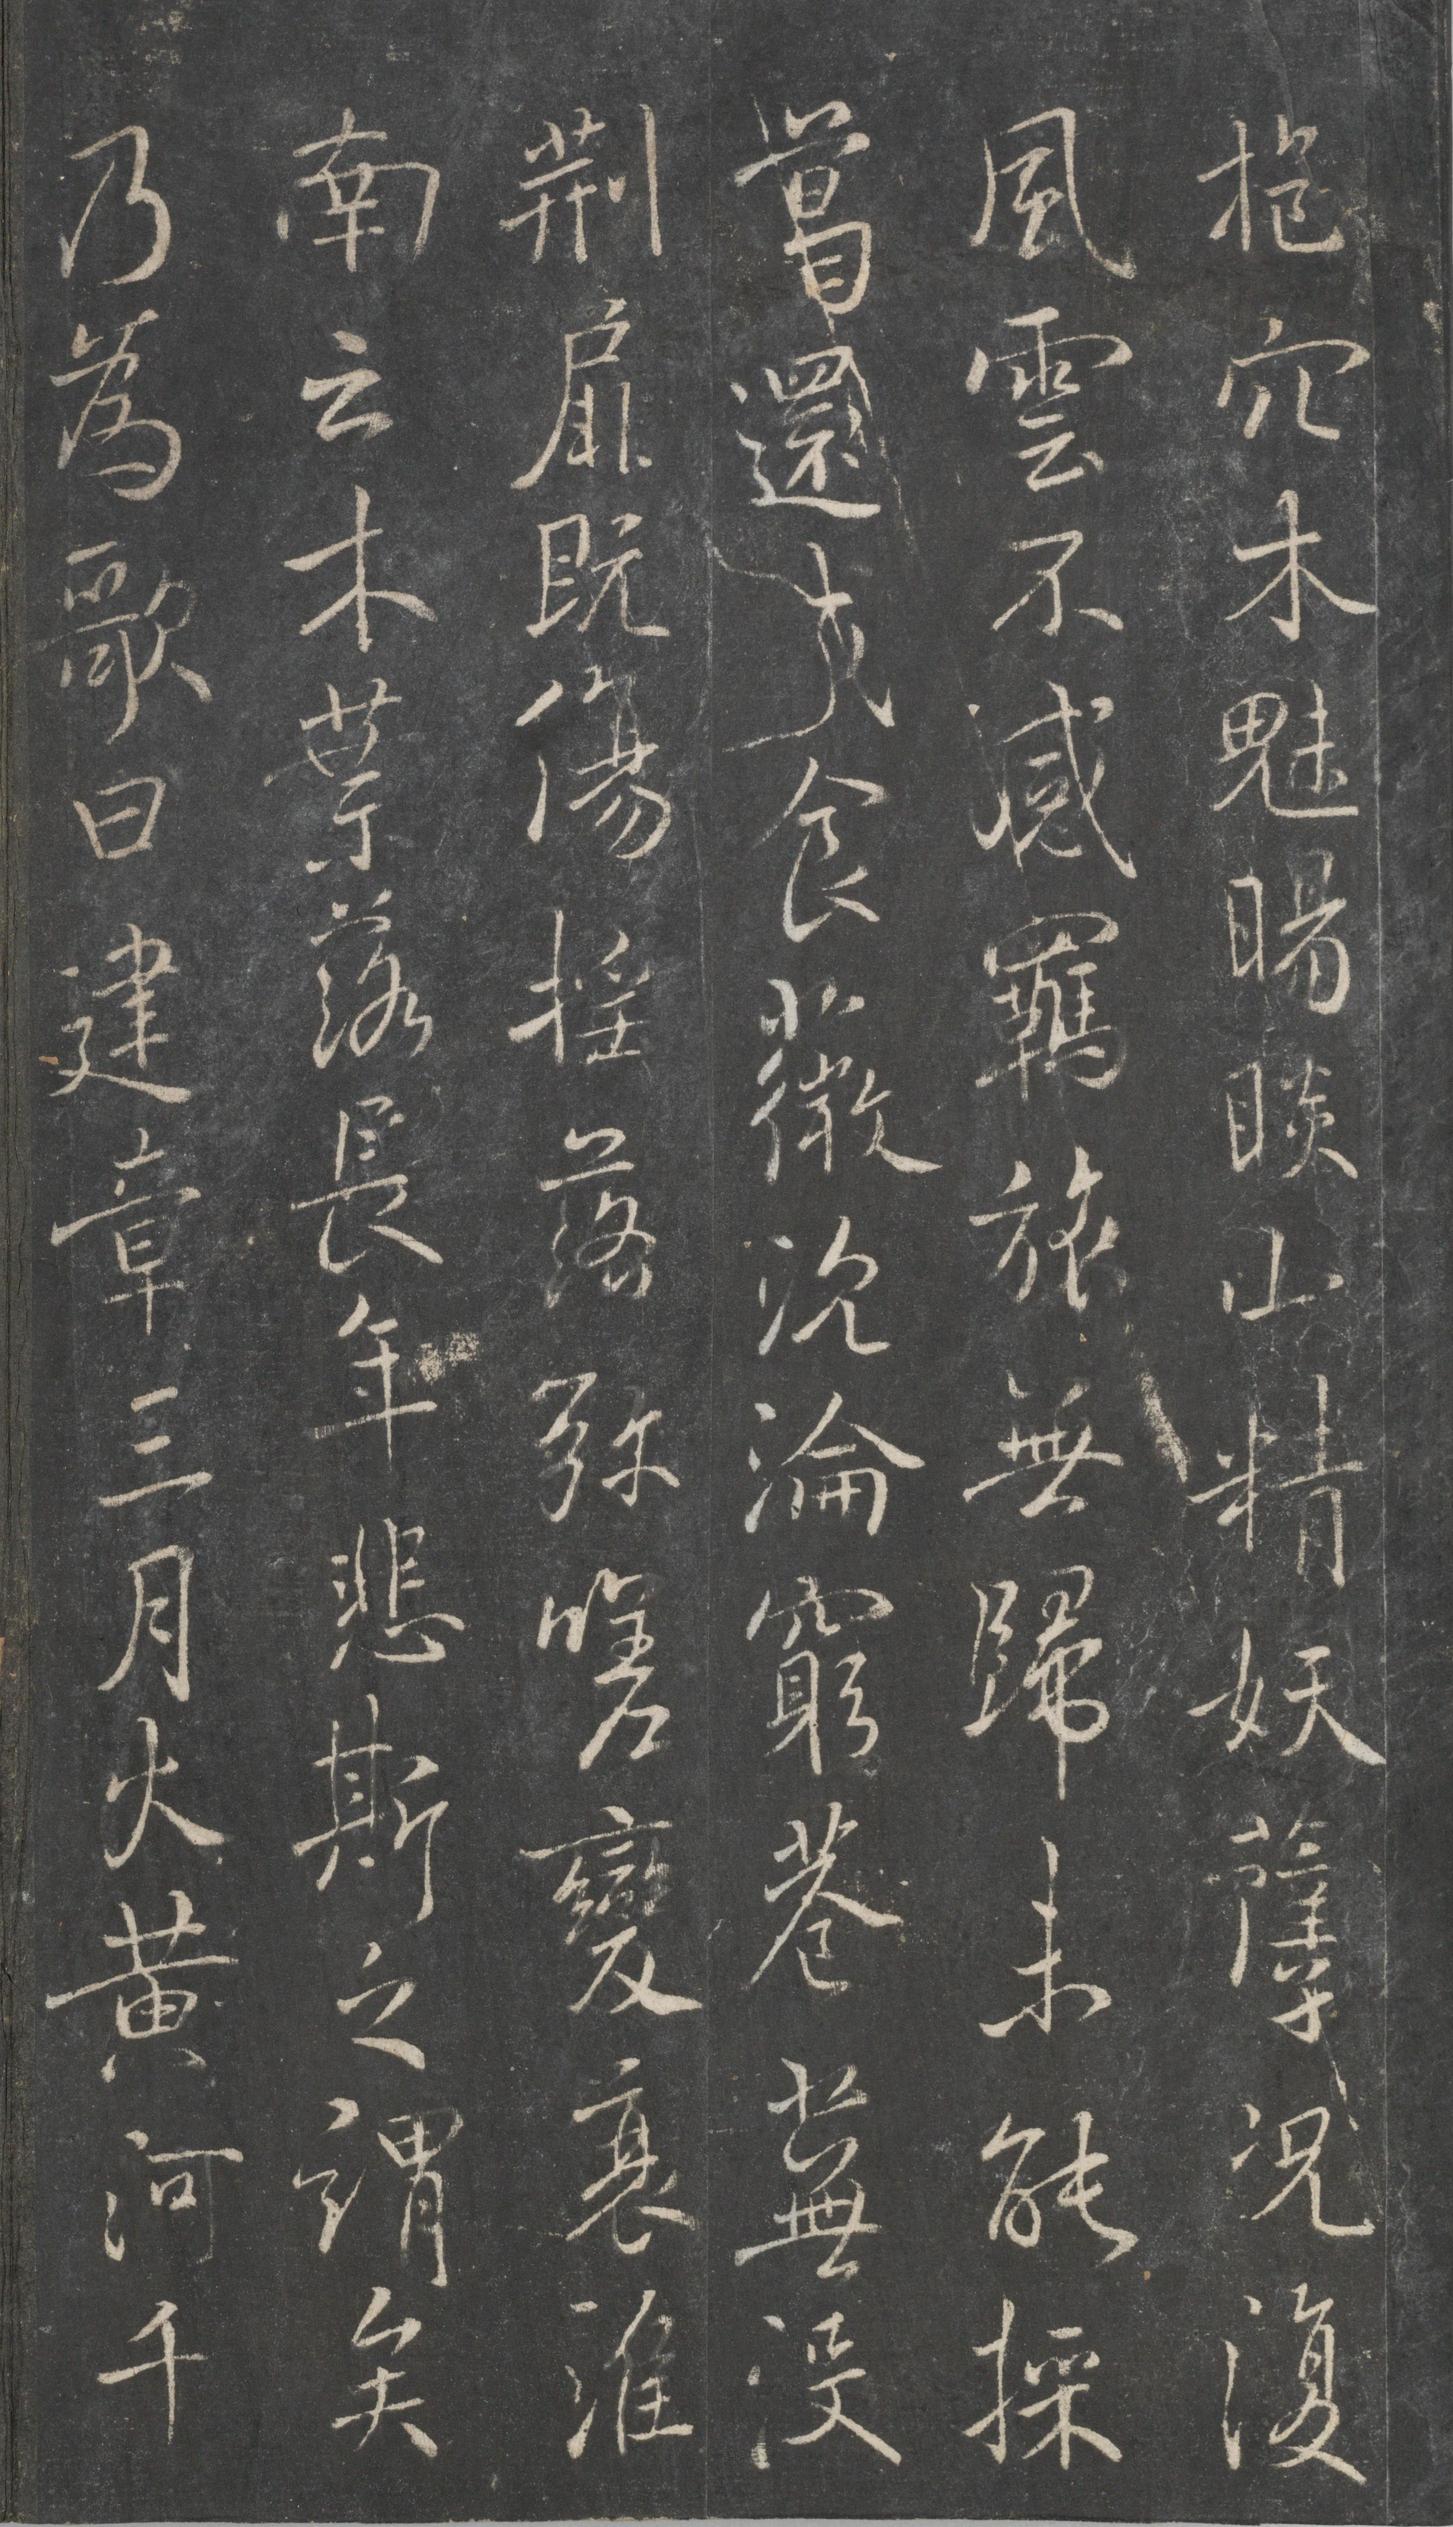 抱穴木魅睗睒山精妖孽況復
風雲不感羈旅無歸未能採
葛還成食薇沈淪窮巷蕪沒
荊扉既傷搖落弥嗟變衰淮
南云木葉落長年悲斯之謂矣
乃為歌曰建章三月火黃河千